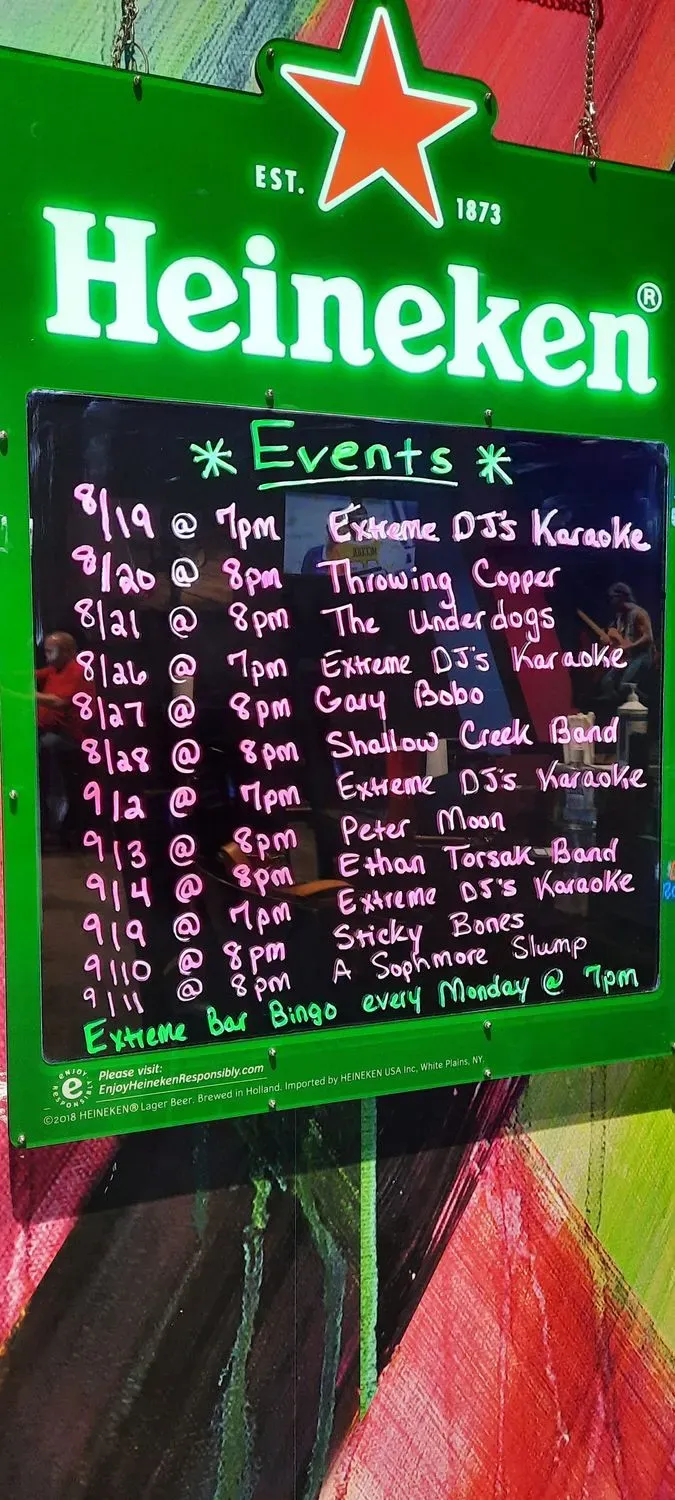 EST. 1873
Heineken®
* Events *
8/19 @ 7pm Extreme DJ's Karaoke
8/20 @ 8pm Throwing Copper
8/21 @ 8pm The Underdogs
8/26 @ 7pm Extreme DJ's Karaoke
8/27 @ 8pm Gary Bobo
8/28 @ 8pm Shallow Creek Band
9/2 @ 7pm Extreme DJ's Karaoke
9/3 @ 8pm Peter Moon
9/4 @ 8pm Ethan Torsak Band
9/9 @ 7pm Extreme DJ's Karaoke
9/10 @ 8pm Sticky Bones
9/11 @ 8pm A Sophmore Slump
Extreme Bar Bingo every Monday @ 7pm
ENJOY RESPONSIBLY
Please visit:
EnjoyHeinekenResponsibly.com
©2018 HEINEKEN® Lager Beer. Brewed in Holland. Imported by HEINEKEN USA Inc, White Plains, NY.